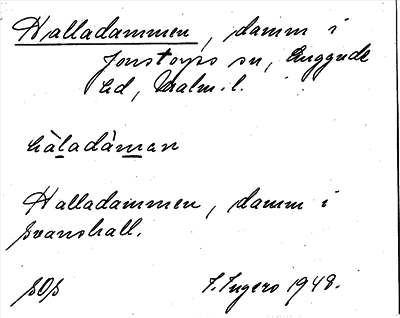 Halladammen, damm i
Jonstorps sn, Luggude
hd, Malm. l.
hàladàman
Halladammen, damm i
Svanshall.
SOS
S. Ingers 1948.